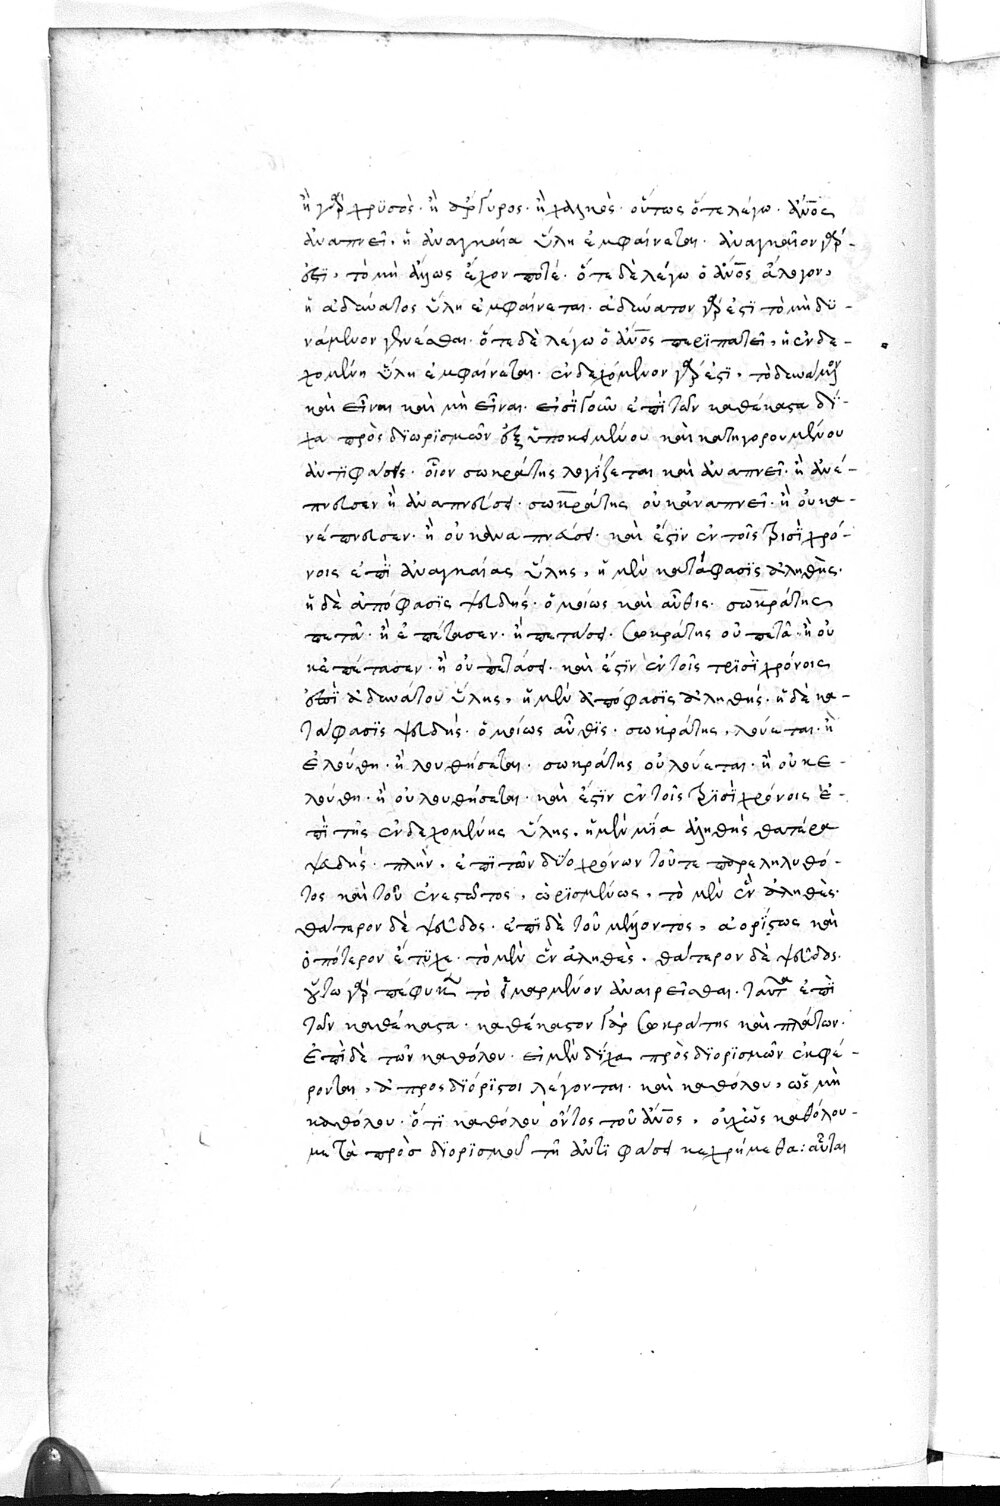 ἢ γὰρ χρϋσὸς· ἢ ἄργυρος· ἢ χαλκὸς· οὕτως ὅτε λέγω· ἄνος
ἀναπνεῖ, ἡ ἀναγκαία ὕλη ἐμφαίνεται· ἀναγκαῖον γὰρ
ἐστϊ, τὸ μὴ ἄλλως ἔχον ποτέ· ὅτε δὲ λέγω ὁ ἄνος ἄλογον,
ἡ ἀδύνατος ὕλη ἐμφαίνεται· ἀδύνατον γὰρ ἐστϊ τὸ μὴ δϋ-
νάμενον γενέσθαι· ὅτε δὲ λέγω ὁ ἄνος περϊπατεῖ, ἡ ἐνδε-
χομένη ὕλη ἐμφαίνεται· ἐνδεχόμενον γὰρ ἐστϊ, τὸ δυνάμενον
καὶ εἶναι καὶ μὴ εἶναι· εἰσὶ γοῦν ἐπὶ τῶν καθέκαστα δί-
χα πρὸς διωρϊσμῶν ἐξ ὑποκειμένου καὶ κατηγορουμένου
ἀντϊφάσεις· οἷον σωκράτης λογίζεται καὶ ἀναπνεῖ· ἢ ἀνέ-
πνευσεν ἢ ἀναπνεύσει· σωκράτης οὐκ ἀναπνεῖ· ἢ οὐκ α-
νέπνευσεν· ἢ οὐκ ἀναπνεύσει· καὶ ἔστϊν ἐν τοῖς τρισὶ χρό-
νοις ἐπὶ ἀναγκαίας ὕλης, ἡ μὲν κατάφασϊς ἀληθὴς·
ἡ δὲ ἀπόφασϊς ψευδής· ὁμοίως καὶ αὖθις· σωκράτης
πετᾶ· ἢ ἐπέτασεν· ἢ πετάσει· σωκράτης οὐ πετᾶ· ἢ οὐ
κ ἐπέτασεν· ἢ οὐ πετάσει· καὶ ἔστϊν ἐν τοῖς τρϊσὶ χρόνοις
ἐπὶ ἀδυνάτου ὕλης, ἡ μὲν ἀπόφασϊς ἀληθής· ἡ δὲ κα-
τάφασϊς ψευδής· ὁμοίως αὖθϊς· σωκράτης, λούεται· ἢ
ἐλούθη· ἢ λουθήσεται· σωκράτης οὐ λούεται· ἢ οὐκ ἐ-
λούθη· ἢ οὐ λουθήσεται· καὶ ἔστϊν ἐν τοῖς τρϊσὶ χρόνοις ἐ-
πὶ τῆς ἐνδεχομένης ὕλης, ἡ μὲν μία ἀληθὴς θατέρα
ψευδής· πλὴν, ἐπὶ τῶν δύο χρόνων τοῦ τε παρεληλυθό-
τος καὶ τοῦ ἐνεστῶτος, ὡρϊσμένως, τὸ μὲν ἓν ἀληθὲς·
θάτερον δὲ ψεῦδος· ἐπὶ δὲ τοῦ μέλλοντος, ἀορίστως καὶ
ὁπότερον ἔτϋχε· τὸ μὲν ἓν ἀληθὲς, θάτερον δὲ ψεῦδος·
οὕτω γὰρ πέφυκε τὸ εἱμαρμένον ἀναιρεῖσθαι· ταῦτα ἐπὶ
τῶν καθέκαστα· καθέκαστον γὰρ σωκράτης καὶ πλάτων·
ἐπὶ δὲ τῶν καθόλου· εἰ μὲν δίχα πρὸς διορϊσμῶν ἐκφέ-
ρονται, ἀπροσδιόρϊστοι λέγονται· καὶ καθόλου, ὡς μὴ
καθόλου· ὅτϊ καθόλου ὄντος τοῦ ἄνος, οὐχ ὡς καθόλου-
μετὰ πρὸσ διορϊσμοῦ τῆ ἀντιφάσει κεχρήμεθα: αὗται